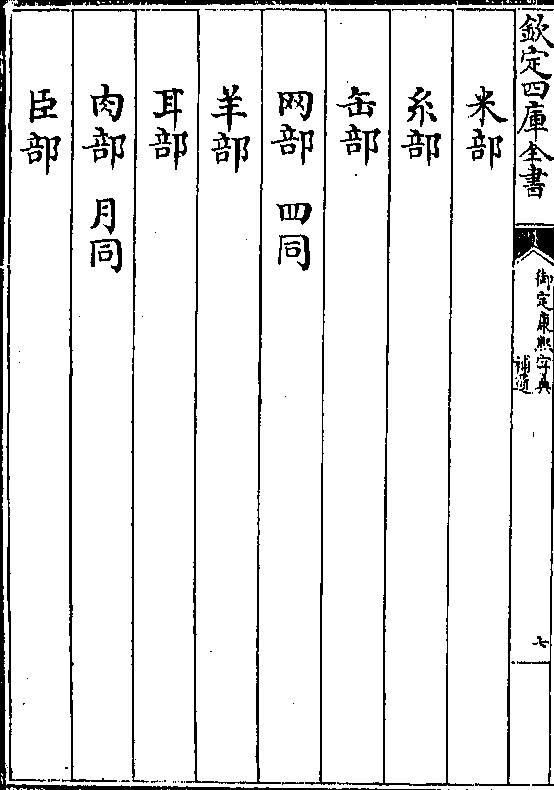 欽定四庫全書
御定康熙字典
補遺
七
米部
糸部
缶部
网部 罒同
羊部
耳部
肉部 月同
臣部